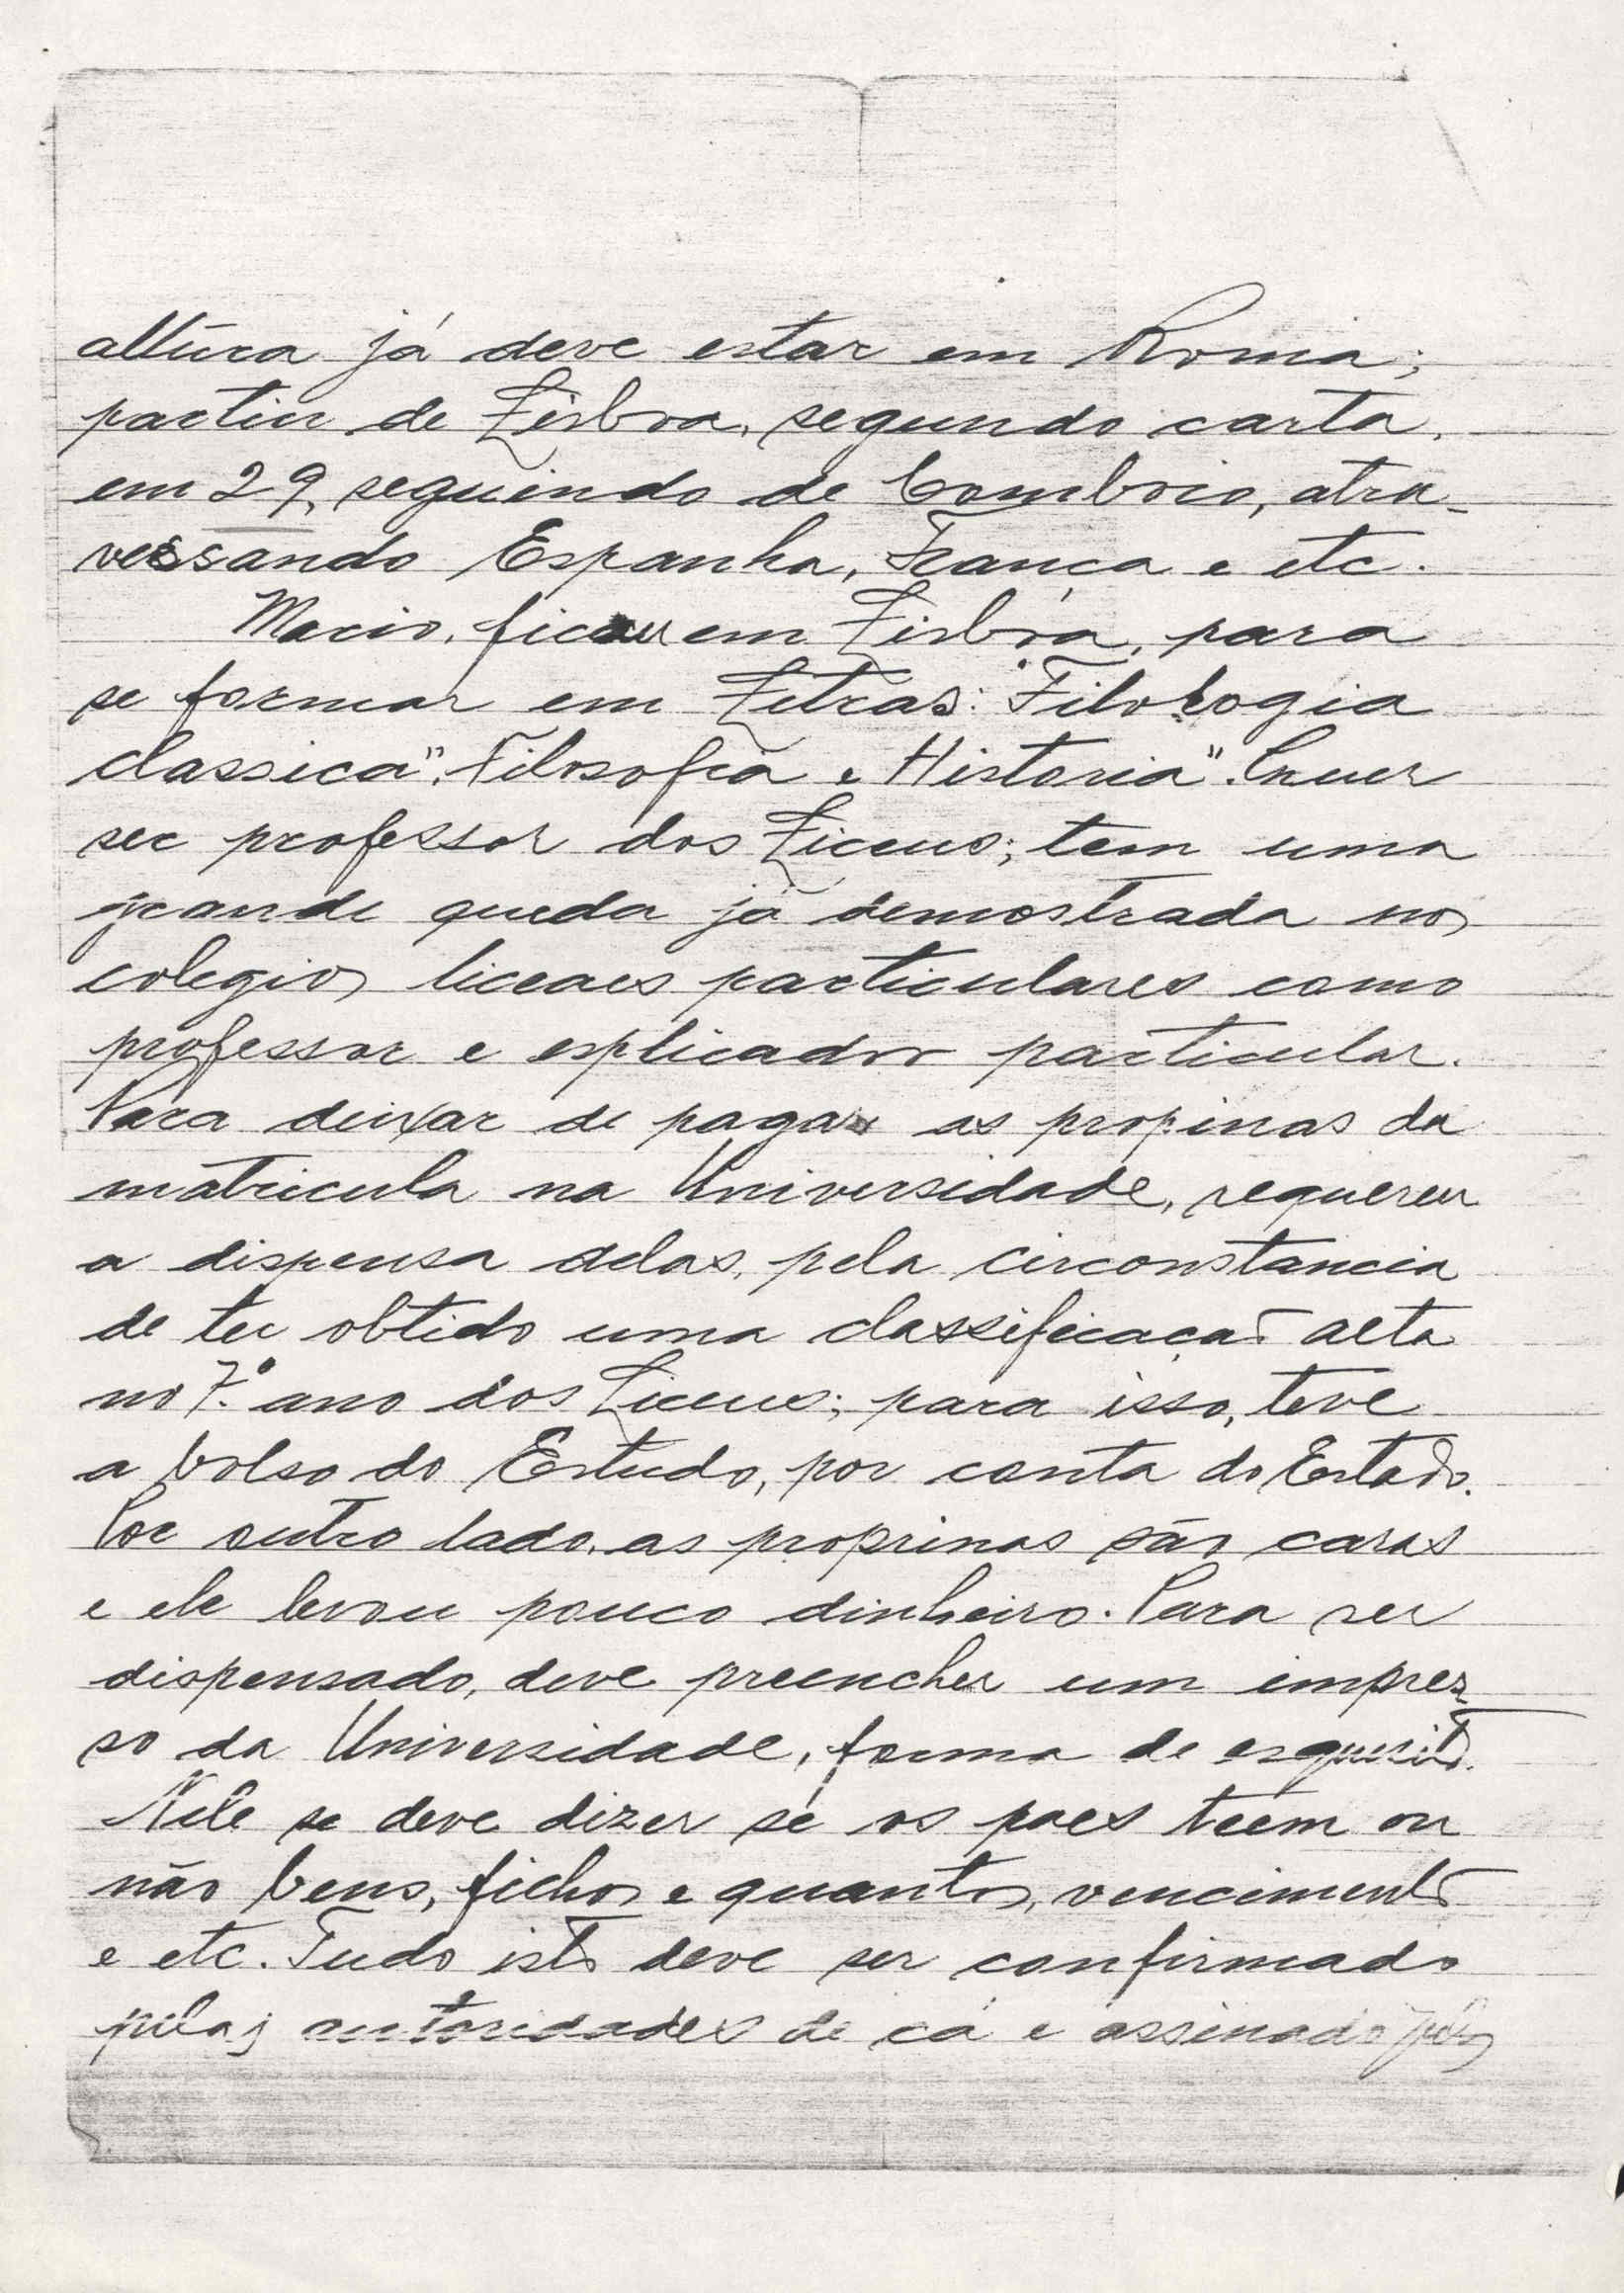 altura já deve estar em Roma;
partiu de Lisboa, segundo carta,
em 29, seguindo de Comboio, atra-
vessando Espanha, França e etc.
Mario, ficou em Lisbôa, para
se formar em Letras: "Filologia
classica", "Filosofia e Historia". Quer
ser professor dos Liceus; tem uma
grande queda já demostrada nos
colegios liceaes particulares como
professor e esplicador particular.
Para deixar de pagar as propinas da
matricula na Universidade, requereu
a dispensa delas, pela circonstancia
de ter obtido uma classificação alta
no 7.º ano dos Liceus; para isso, teve
a bolsa do Estudo, por conta do Estado.
Por outro lado, as proprinas são caras
e ele levou pouco dinheiro. Para ser
dispensado, deve preencher um impres-
so da Universidade, forma de
Nele se deve dizer se os paes teem ou
não bens, filhos e quantos, vencimento
e etc. Tudo isto deve ser confirmado
pelas autoridades de cá e assinado pelos